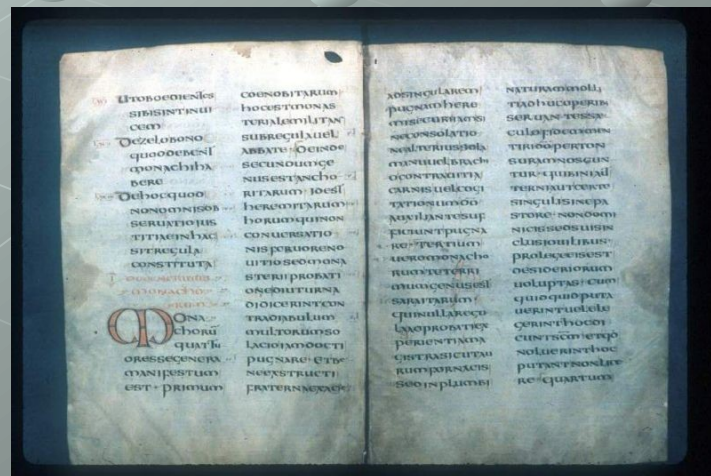 UTOBOEDIENTES
SIBISINTINUI
CEM
DEZELOBONO
QUODDEBENT
MONACHIHA
BERE
DEHOCQUOD
NONOMNISOB
SERUATIOIUS
TITIAEINHAC
SITREGULA
CONSTITUTA
MONACHO
MONA
CHORŪ
QUATTU
ORESSEGENERA
MANIFESTUM
EST PRIMUM
COENOBITARUM
HOCESTMONAS
TERIALEMILITAN
SUBREGULAUEL
ABBATE DEINDE
SECUNDUMGE
NUSESTANCHO
RITARUM IDEST
HEREMITARUM
HORUMQUINON
CONUERSATIO
NISFERUORENO
UITIOSEDMONA
STERIIPROBATI
ONEDIUTURNA
DIDICERINTCON
TRADIABULUM
MULTORUMSO
LACIOIAMDOCTI
PUGNARE ETBE
NEEXSTRUCTI
FRATERNAEXACIE
ADSINGULAREM
PUGNAMHERE
MISECURIIAMSI
NECONSOLATIO
NEALTERIUSSOLA
MANUUELBRACH
OCONTRAUITIA
CARNISUELCOGI
TATIONUMDO
AUXILIANTESUF
FICIUNTPUGNA
RE TERTIUM
UEROMONACHO
RUMTETERRI
MUMGENUSEST
SARAITARUM
QUINULLAREGU
LAADPROBATIEX
PERIENTIAMA
GISTRASICUTAU
RUMFORNACIS
SEDINPLUMBI
NATURAMMOLLI
TIADHUCOPERIB
SERUAN TESSAE
CULOFIDEMMEN
TIRIDOPERTON
SURAMNOSCUN
TUR QUIBINIAUT
TERNIAUTCERTE
SINGULISINEPA
STORE NONDOMI
NICISSEDSUISIN
CLUSIOUILIBUS
PROLEGEEISEST
DESIDERIORUM
UOLUPTAS CUM
QUIDQUIDPUTA
UERINTUELELE
GERINTHOCDI
CUNTSCM ETQD
NOLUERINTHOC
PUTANTNONLICE
RE QUARTUM